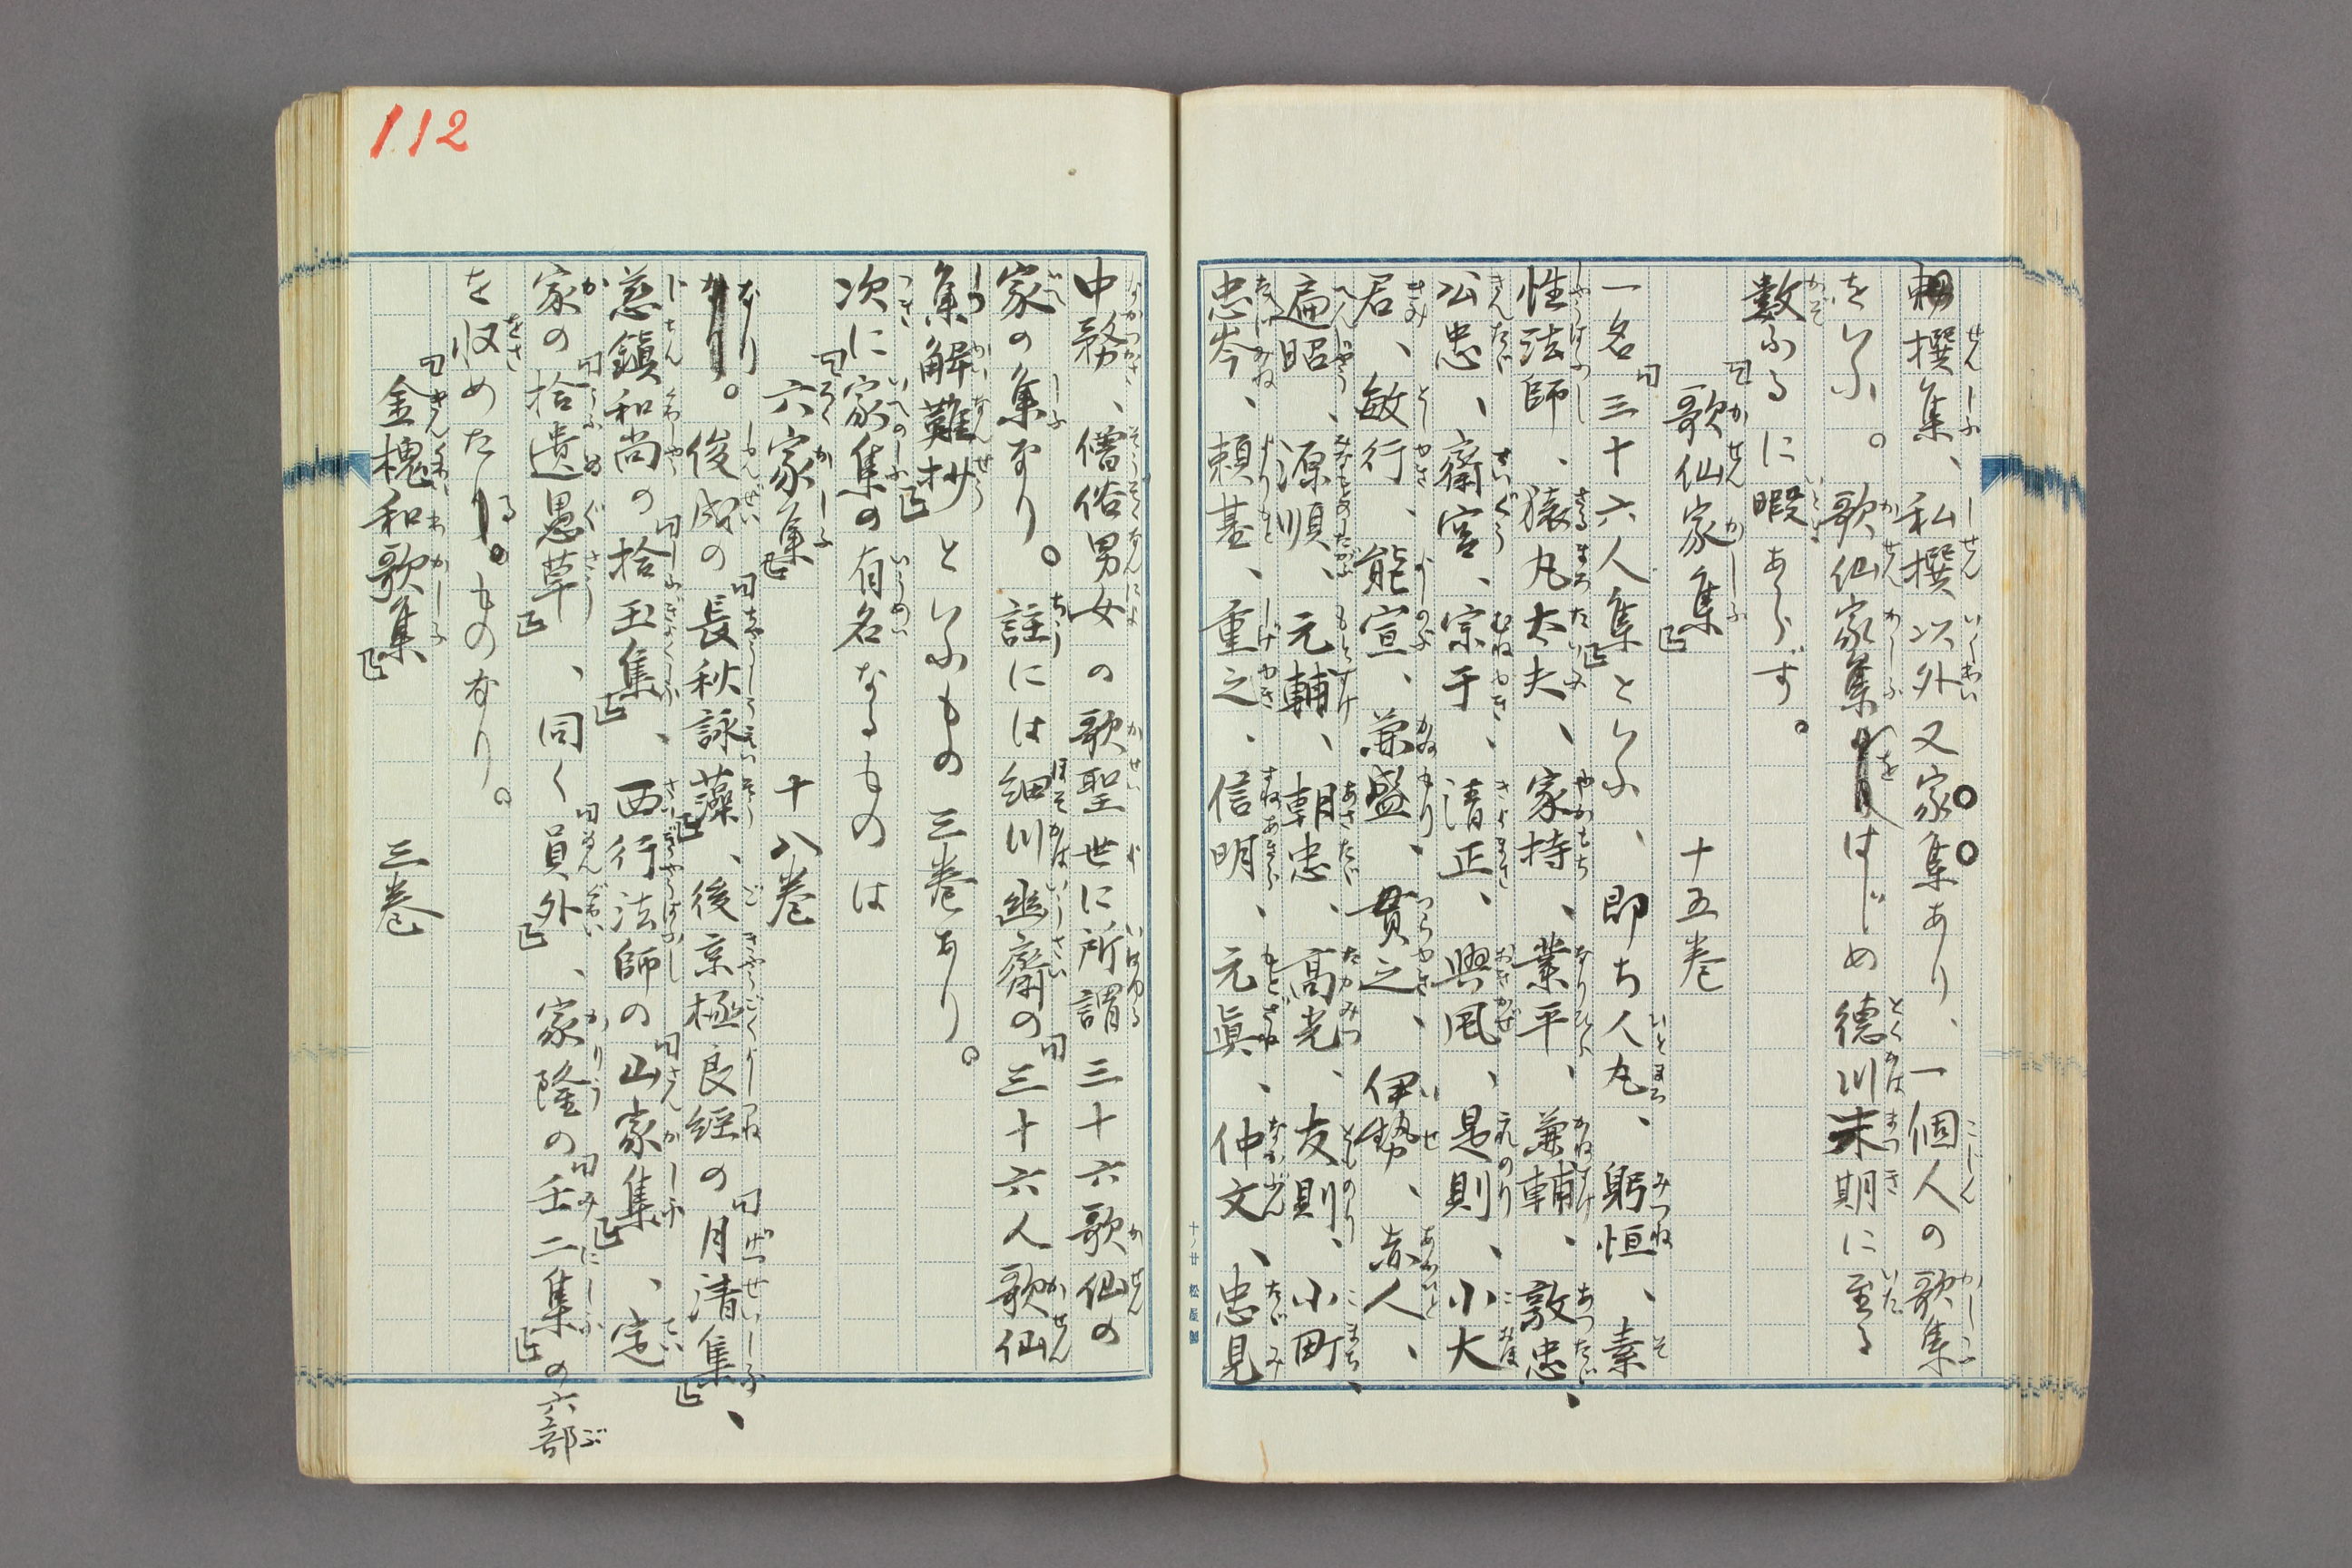 勅撰集、私撰以外又家集あり、一個人の歌集
をいふ。歌仙家集をはじめ德川末期に至る
數ふるに暇あらず。
「歌仙家集」 十五卷
一名「三十六人集」といふ、即ち人丸、躬恒、素
性法師、猿丸大夫、家持、業平、兼輔、敦忠、
公忠、齋宮、宗于、清正、興風、是則、小大
君、敏行、能宣、兼盛、貫之、伊勢、赤人、
遍昭、源順、元輔、朝忠、高光、友則、小町、
忠岑、頼基、重之、信明、元眞、仲文、忠見
中務、僧俗男女の歌聖世に所謂三十六歌仙の
家の集なり。註には細川幽齋の「三十六人歌仙
集解難抄」といふもの三卷あり。
次に家集の有名なるものは
「六家集」 十八卷
なり。俊成の「長秋詠藻」、後京極良經の「月清集」、
慈鎭和尚の「拾玉集」、西行法師の「山家集」、定
家の「拾遺愚草」、同く「員外」、家隆の「壬二集」の六部
を収めたるものなり。
「金槐和歌集」 三卷
112
十ノ廿 松屋製